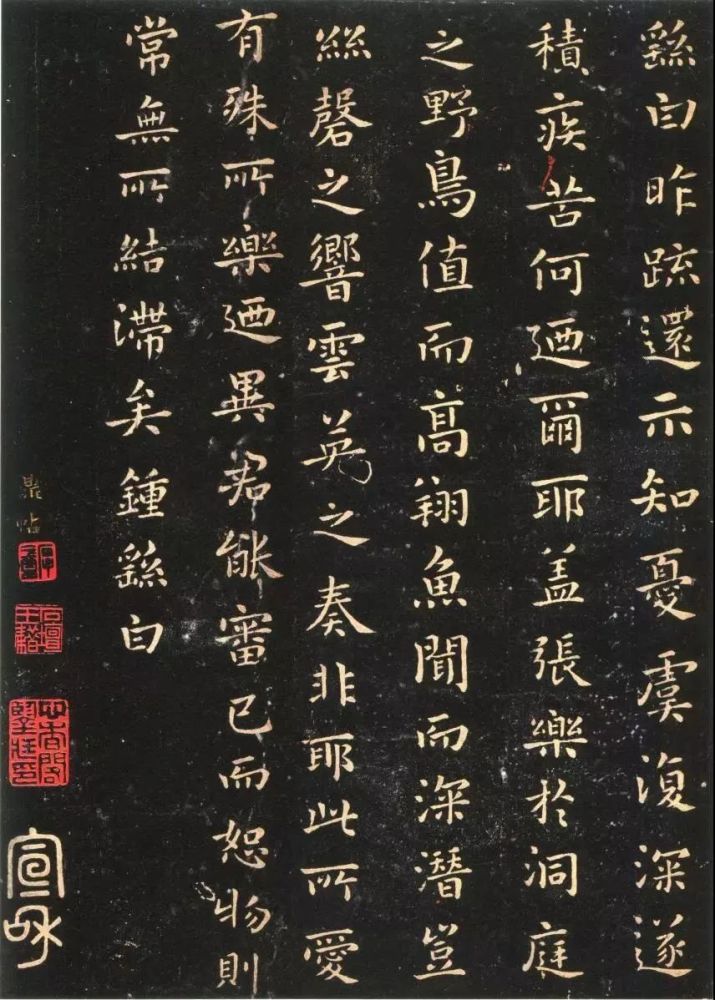 繇白昨疏還示知憂虞復深遂
積疾苦何迺爾耶盖張樂於洞庭
之野鳥值而高翔魚聞而深潛豈
絲磬之響雲英之奏非耶此所愛
有殊所樂迺異君能審己而恕物則
常無所結滯矣鍾繇白
宣和